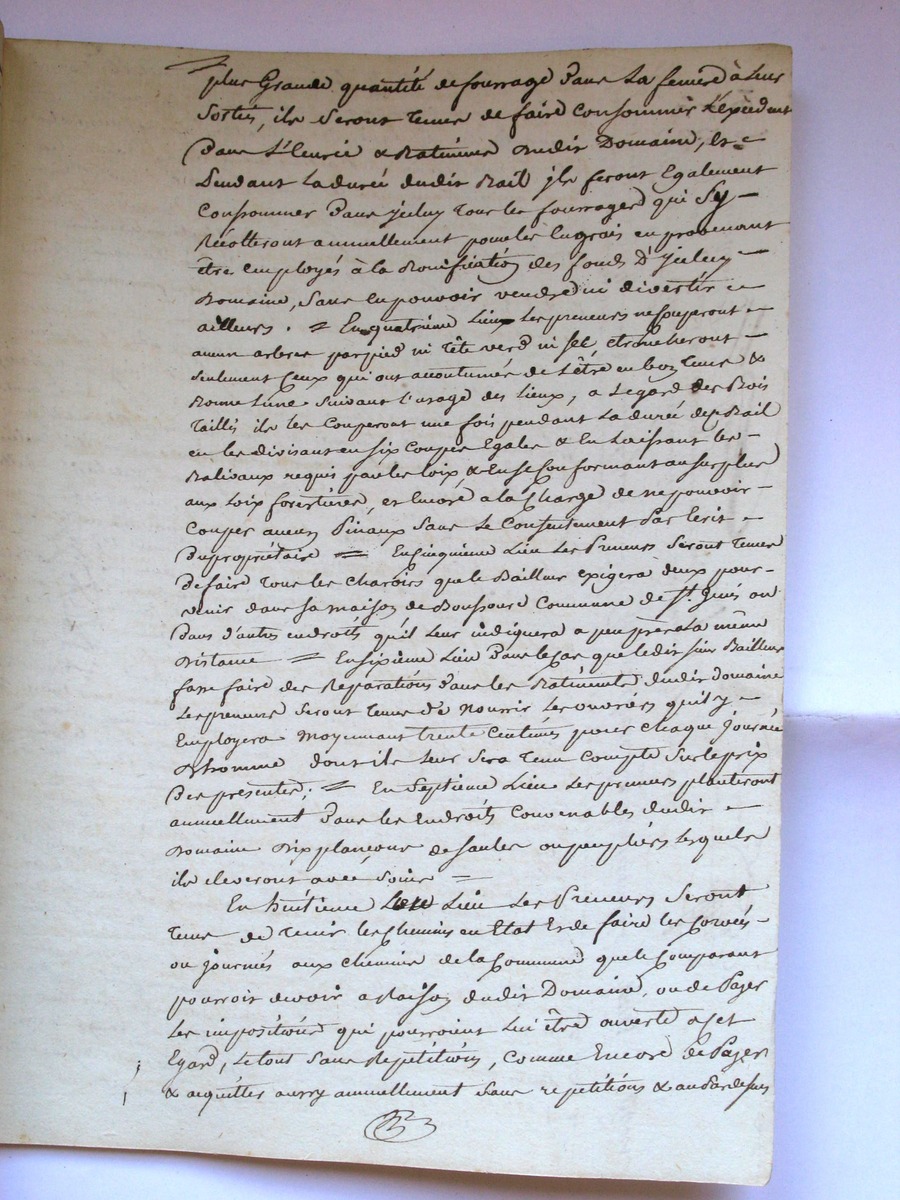 plus Grande quantité de fourrage dans La femeré à Leur
Sorties, ils Seront tenus de faire Consommer L'Excedent
dans L'Ecurie & Batimens dudit Domaine, Et
Pendant La durée dudit Bail jls feront Egalement
Consommer dans jceluy tous les fourrages qui Sy
Récolteront annuellement pour les Engrais en provenant
être employés à la Bonification des fonds D'jceluy
Domaine, Sans En pouvoir vendre ni divertir
ailleurs. = En quatrième Lieu Les preneurs ne Couperont
aucun arbres par pied ni Tête verd ni Sec, Etroncheront
Seulement Ceux qui ont accoutumés de L'être en bon tems &
Bonne Lune Suivant l'usage des Lieux, a L'egard des Bois
Taillis ils les Couperont une fois pendant La durée de Bail
en les divisant en Six Coupes Egales & En Laissant les
Balivaux requis par les Loix, & En se Conformant au Surplus
aux Loix forestières, et Encore a la Charge de ne pouvoir
Couper aucun Pinaux Sans Le Consentement Par Ecrit
Du propriétaire = En Cinquième Lieu Les Preneurs Seront tenus
de faire Tous les Charois que le Bailleur exigera deux pour
venir dans sa maison de Boussoure Commune de St Genés ou
dans d'autres endroits qu'il Leur indiquera a peu près La même
Distance = En Sixième Lieu Dans le Cas que ledit Sieur Bailleur
fasse faire des Réparations Dans les Batiments dudit domaine
Les preneurs Seront tenus de Nourrir Les ouvriers qu'il y
Employera Moyennant trente Centimes pour Chaque journée
D'homme dont il Leur Sera tenu Compte Sur le prix
Des presentes; = En Septieme Lieu Les preneurs planteront
annuellement Dans les Endroits Convenables dudit
Domaine Dix plançons de Saules ou peupliers Lesquels
ils éleveront avec Soins =
En huitieme Lieu Les Preneurs Seront
Tenus de Tenir les Chemins en Etat Et de faire les Corvées
ou journées aux Chemins de la Commune que le Comparant
pourroit devoir a Raison dudit Domaine, ou de Payer
Les impositions qui pourroient Lui être ouverte a Cet
Egard, Le tout Sans Répétitions, Comme Encore de Payer
& acquitter aussy annuellement Sans repetitions & au Pardessus